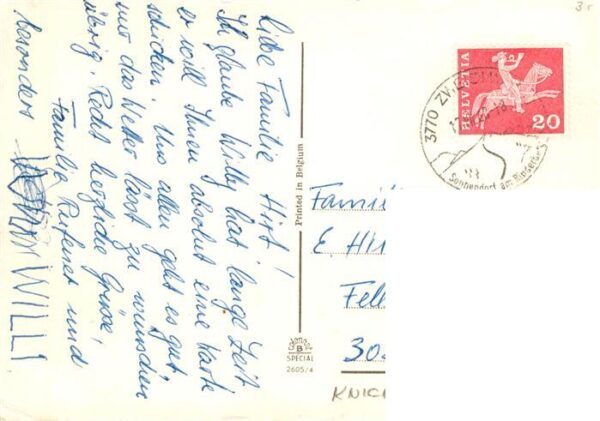 Liebe Familie Hirt!
Ich glaube Willy hat lange Zeit
er will Ihnen absolut eine Karte
schicken. Uns allen geht es gut
nur das Wetter lässt zu wünschen
übrig. Recht herzliche Grüsse,
Familie Rufener und
besonders
WILLI
Printed in Belgium
B
SPECIAL
2605/4
HELVETIA
20
3770 ZW
Sonnendorf am Rinderberg
Famili
E. Hir
Fel
30
KNICK